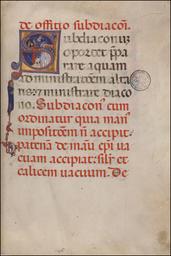 de officio subdiaconi.
Subdiaconuz
oportet ppa
rare aquam
ad ministracōem alta
ris ministrare diaco
no. Subdiaconus cum
ordinatur quia man'
impositōem ñ accipit
patenā de manu epī va
cuam accipiat: silr et
calicem vacuum. De